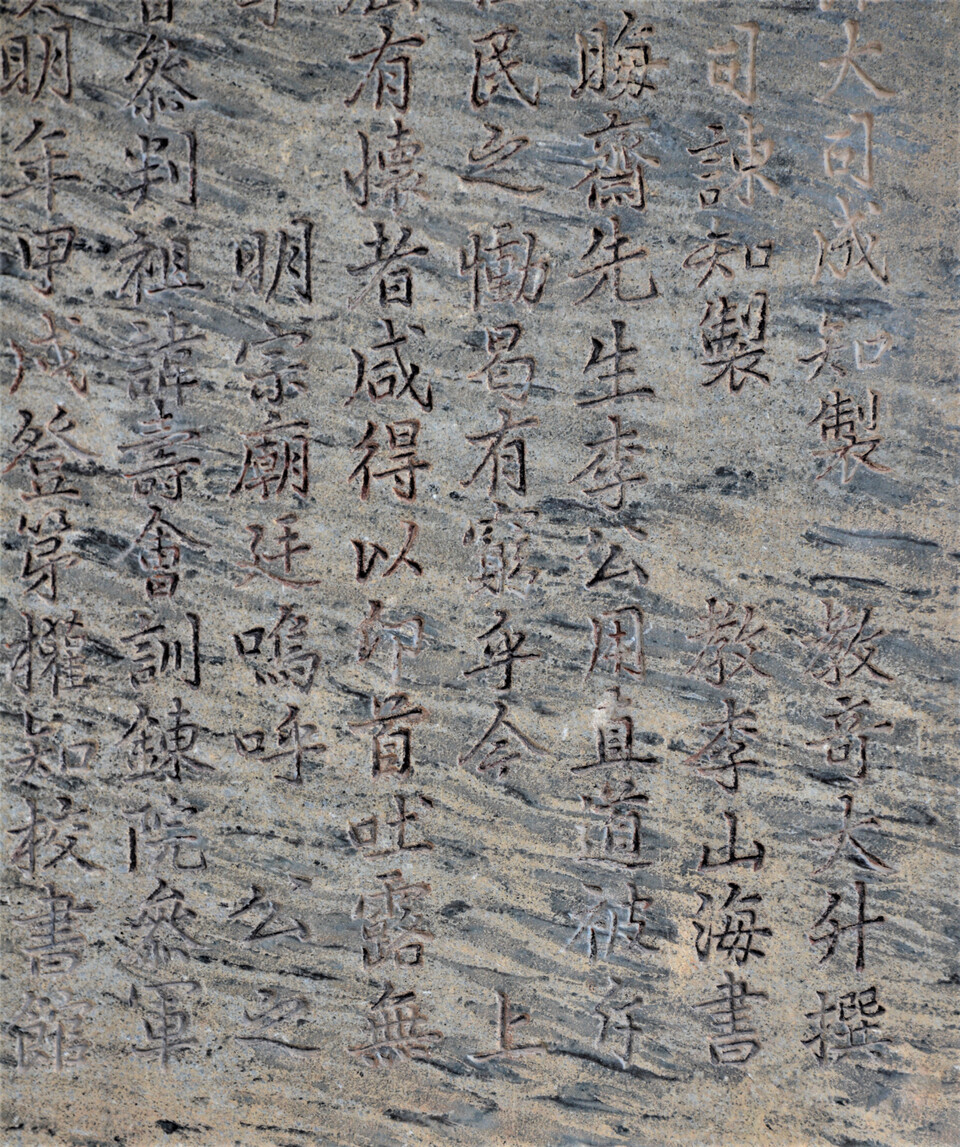 大司成知製 教奇大升撰
司諫知製 教李山海書
晦齋先生李公用直道被
民之慟曷有窮乎今 上
有懷者咸得以卬首吐露無
明宗廟廷嗚呼 公之
參判祖諱壽會訓鍊院參軍
明年甲戌登第權知校書館